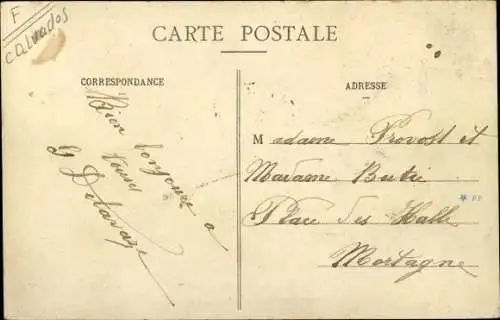 F
Calvados
CARTE POSTALE
CORRESPONDANCE
ADRESSE
Bien bonjour à
tous
G Delavaze
Madame Provost et
Madame Butu
Place des Halle
Mortagne